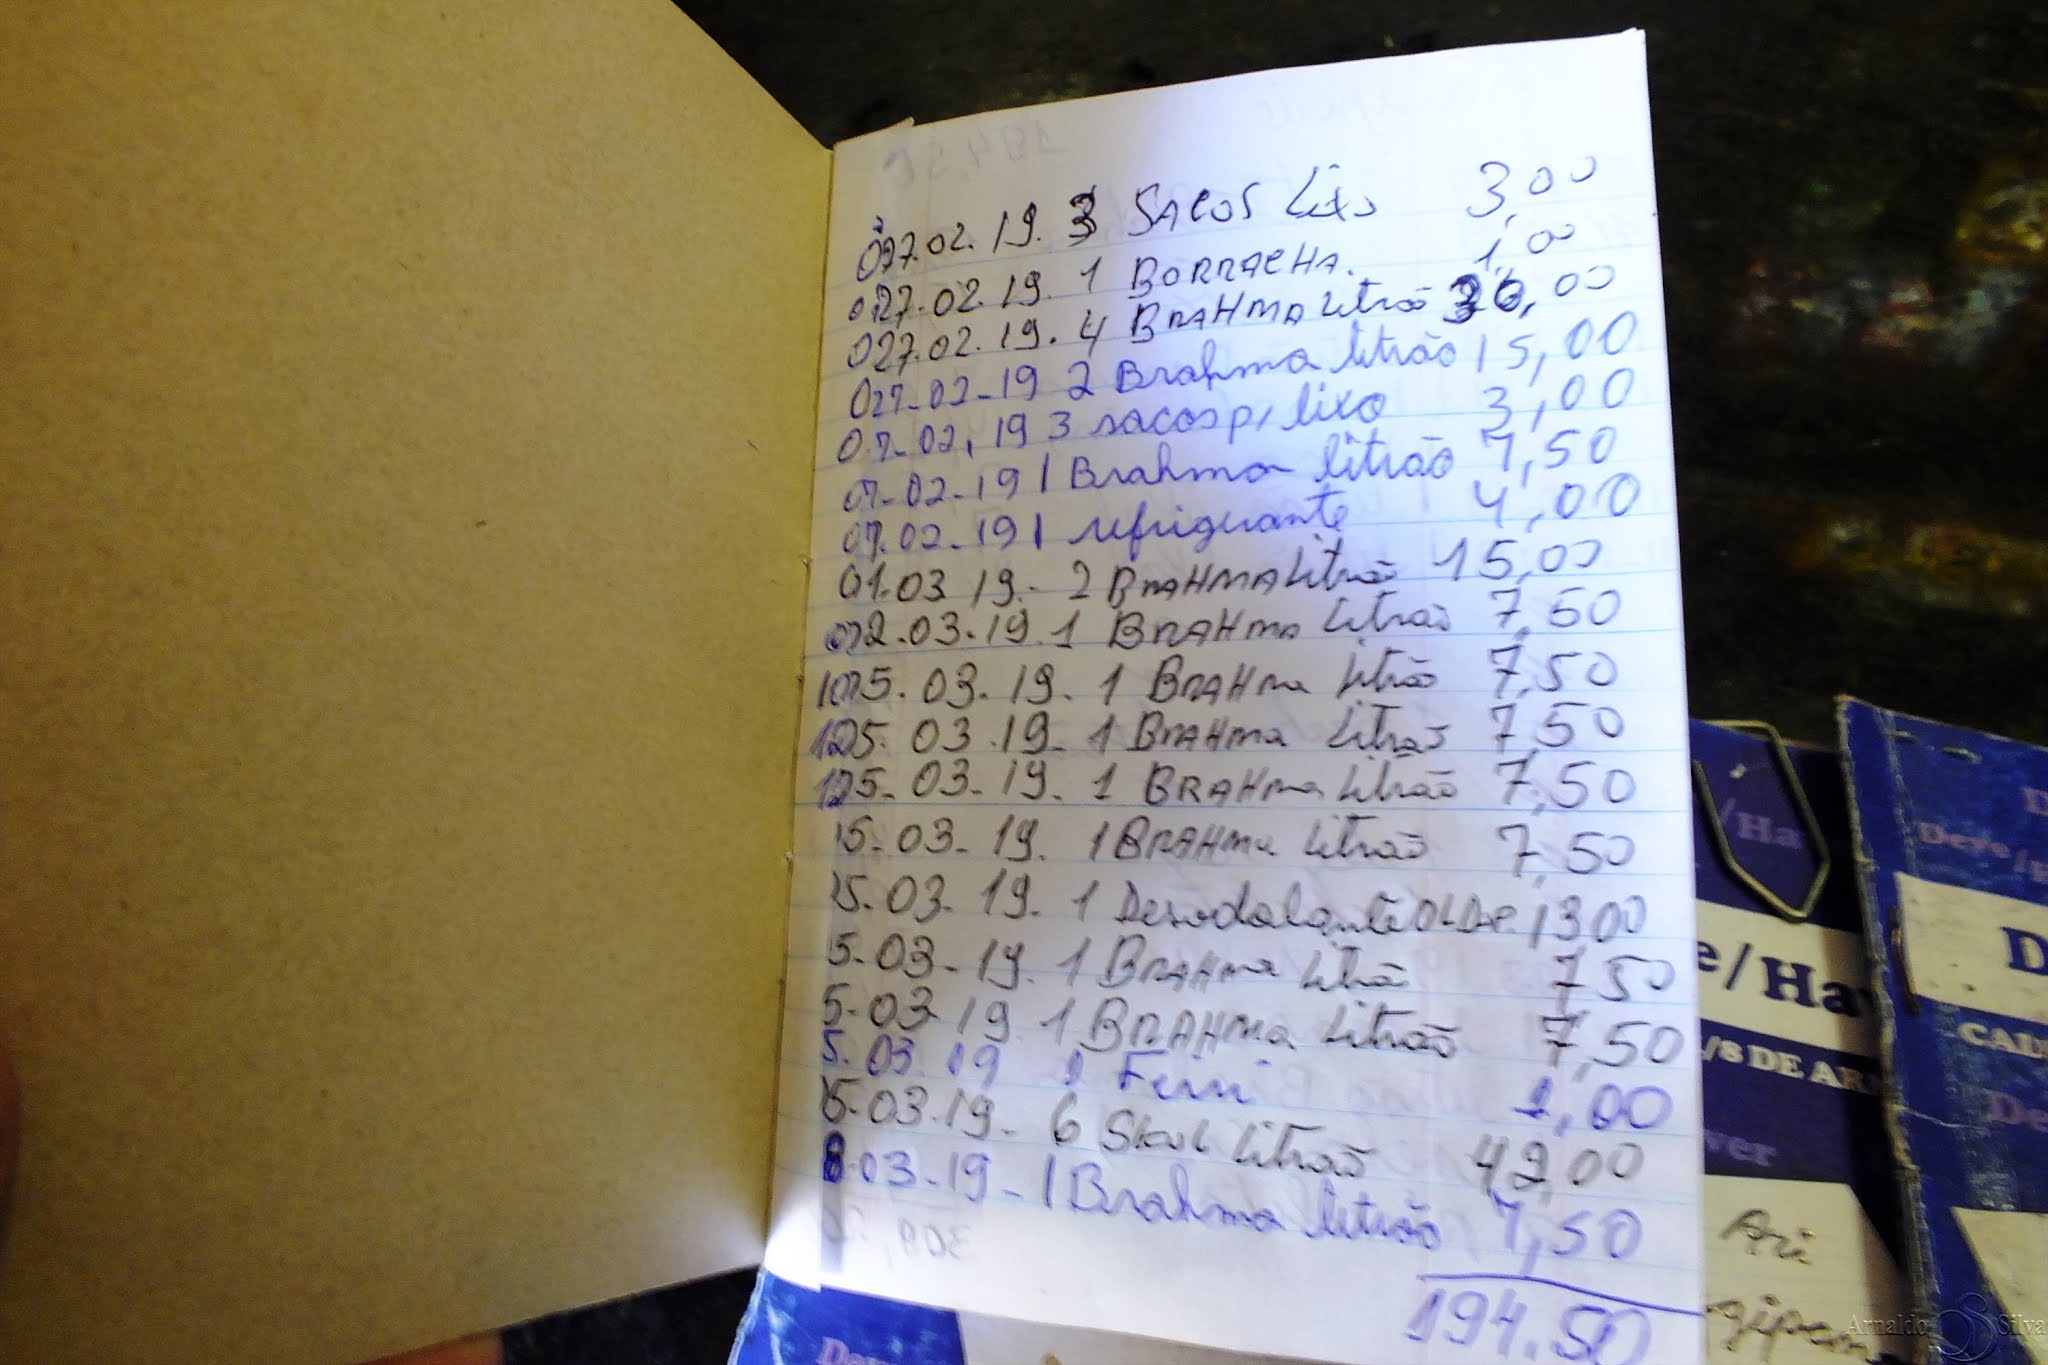 27.02.19. 3 SACOS Lixo 3,00
27.02.19. 1 BORRACHA. 1,00
27.02.19. 4 BRAHMA Litrão 30,00
27-02-19 2 Brahma litrão 15,00
07-02,19 3 sacos p/ lixo 3,00
07-02-19 1 Brahma litrão 7,50
07.02-19 1 refriguante 4,00
01.03 19.- 2 BRAHMA Litrão 15,00
02.03.19.1 BRAHMA Litrão 7,50
05.03.19.1 BRAHMA Litrão 7,50
05.03.19-1 BRAHMA Litrão 7,50
05-03-19.1 BRAHMA Litrão 7,50
5-03-19. 1 BRAHMA Litrão 7,50
5-03-19-1 Desodalante OLD 13,00
5-03-19.1 BRAHMA Litrão 7,50
5-03-19 1 BRAHMA Litrão 7,50
5.03.19 1 Fini 1,00
5-03.19- 6 Skol Litrão 42,00
8-03-19-1 Brahma litrão 7,50
194.50
/Ha
e/Hav
/8 DE AR
ver
Ari
D
Deve/
D
CAD
De
Dev
Arnaldo Silva